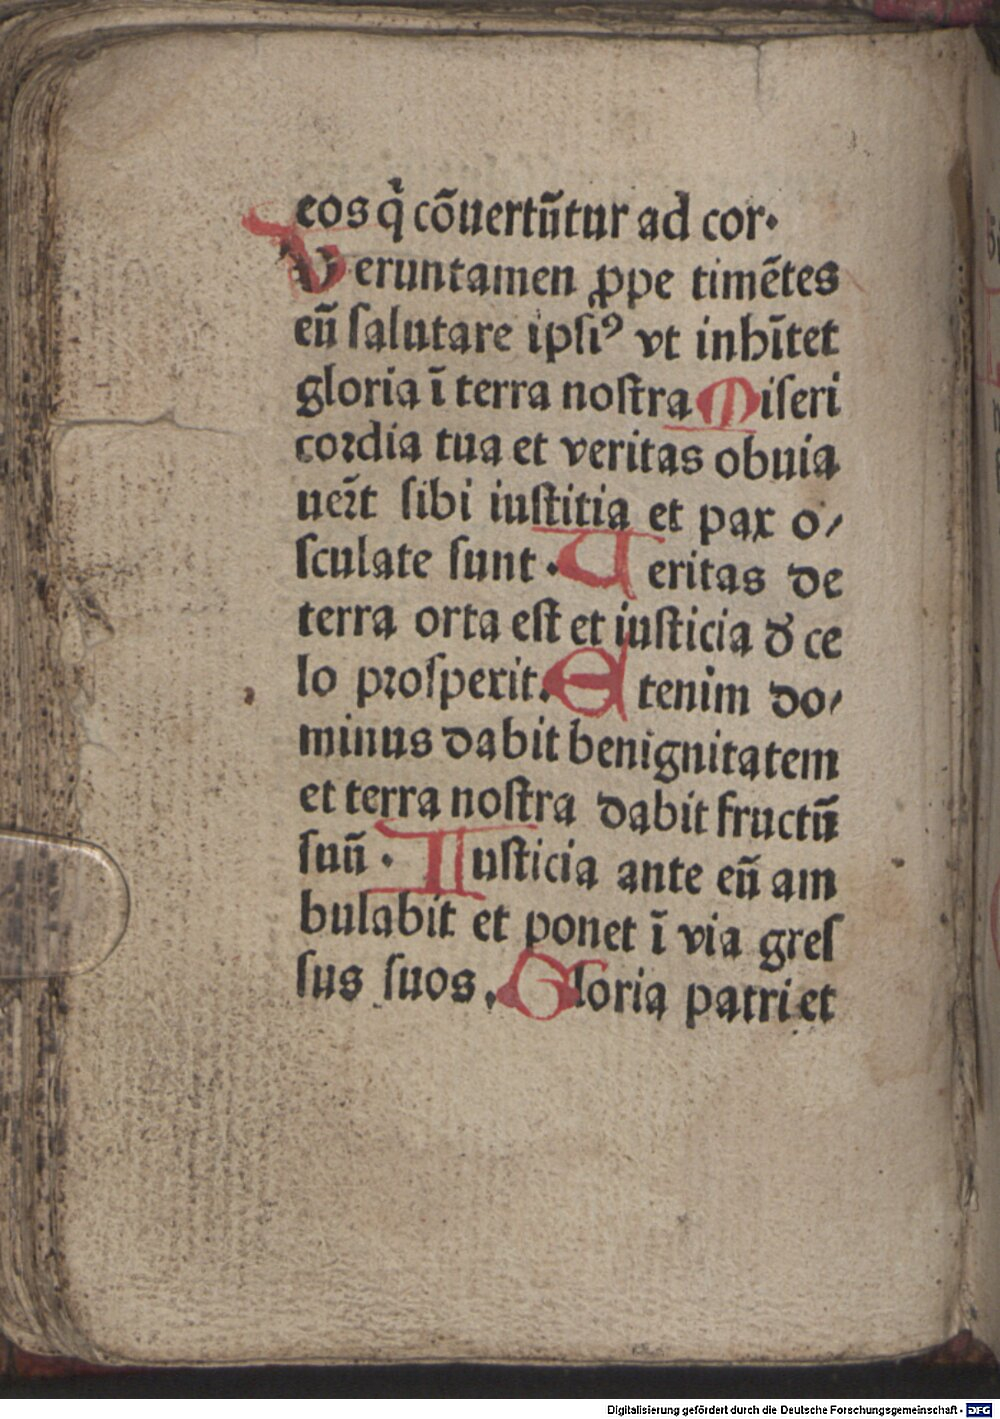 eos q̇ cōuertūtur ad cor·
Veruntamen ꝓpe timētes
eū ſalutare ipſiꝰ vt inhītet
gloria ī terra noſtra Miſeri
coꝛdia tua et veritas obuia
ueꝛ̄t ſibi iuſtitia et pax o/
ſculate ſunt · Ueritas de
terra orta eſt et iuſticia ð ce
lo pꝛoſperit. Etenim do/
minus dabit benignitatem
et terra noſtra dabit fructū
ſuū · Iuſticia ante eū am
bulabit et ponet ī via greſ
ſus ſuos. Gloria patri et
Digitalisierung gefördert durch die Deutsche Forschungsgemeinschaft - DFG